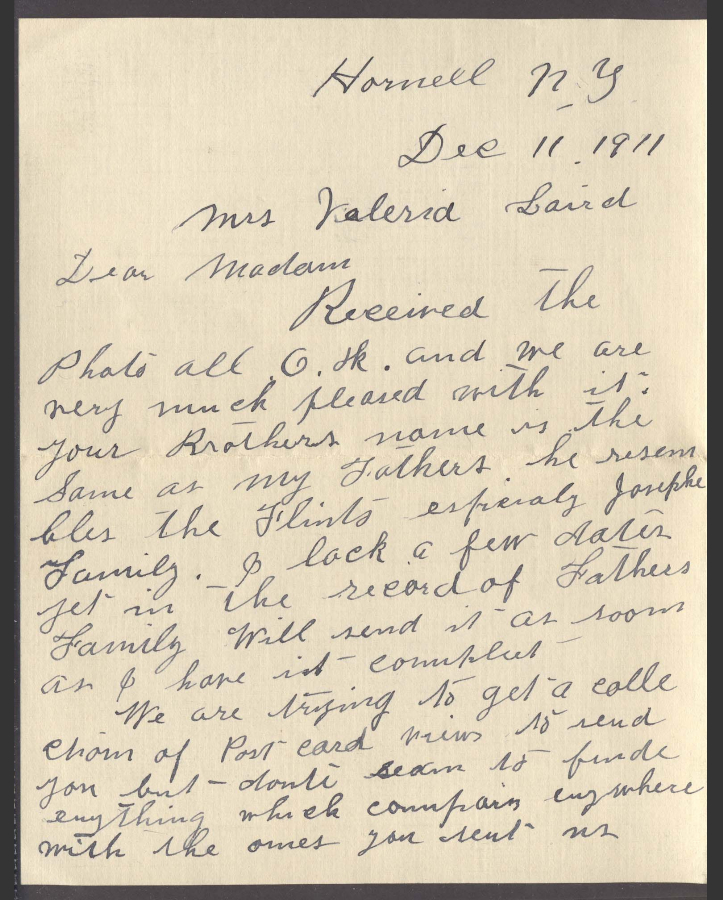 Hornell N Y
Dec 11. 1911
Mrs Valerid Laird
Dear Madam
Received the
Photo all O.K. and we are
very much pleased with it.
your Brothers name is the
Same as my Fathers he resem
bles the Flints espicialy Josephe
Family. I lack a few dates
yet in the record of Fathers
Family Will send it as soon
as I have it compleet
We are trying to get a colle
ction of Post card views to send
you but dont seam to finde
enything which compairs enywhere
with the ones you sent us